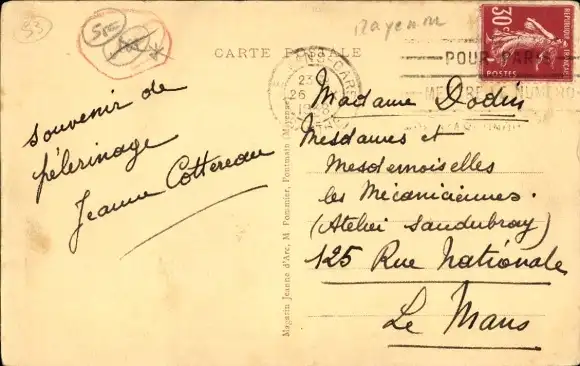 53
Mayenne
CARTE POSTALE
30c
REPUBLIQUE FRANCAISE
POSTES
POUR PARIS
NUMERO
souvenir de
pélerinage
Jeanne Cottereau
Magasin Jeanne d'Arc, M. Pommier, Pontmain (Mayenne)
Madame Dodin
Mesdames et
Mesdemoiselles
les Mécaniciennes.
(Atelier Saudubray)
125 Rue Nationale
Le Mans